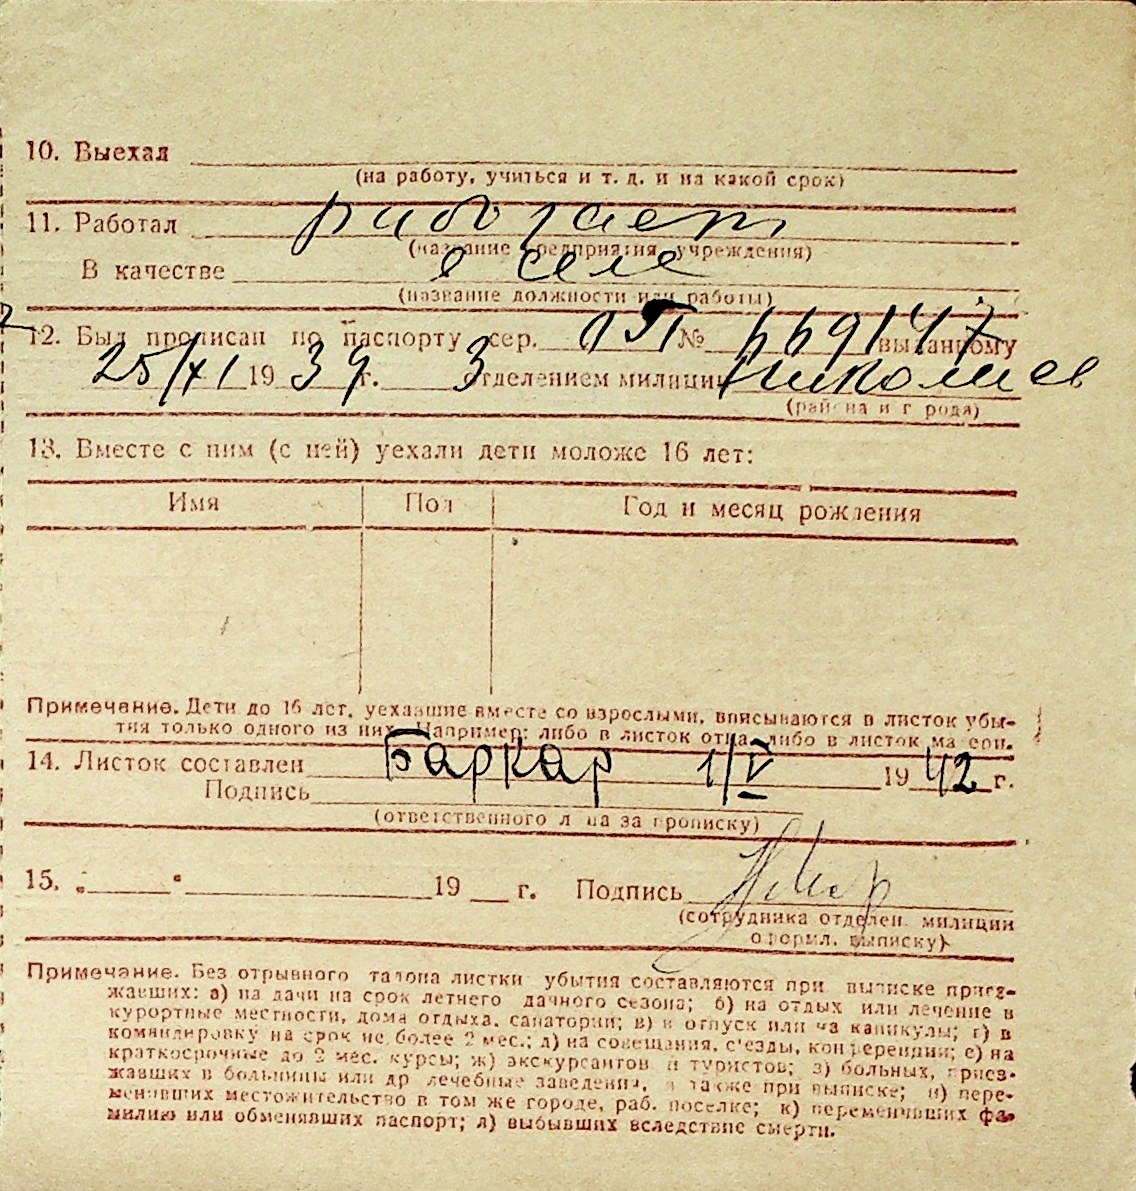 10. Выехал
(на работу, учиться и т. д. и на какой срок)
11. Работал работает
(название предприятия, учреждения)
В качестве в селе
(название должности или работы)
12. Был прописан по паспорту сер. № 669147 выданному
25/XI 1939 г. 3 отделением милиции Николаев
(района и города)
13. Вместе с ним (с ней) уехали дети моложе 16 лет:
Имя Пол Год и месяц рождения
Примечание. Дети до 16 лет, уехавшие вместе со взрослыми, вписываются в листок убы-
тия только одного из них. Например: либо в листок отца, либо в листок матери.
14. Листок составлен Баркар 1/V 1942 г.
Подпись
(ответственного лица за прописку)
15. „ “ 19 г. Подпись
(сотрудника отделен. милиции
оформил. выписку)
Примечание. Без отрывного талона листки убытия составляются при выписке приез-
жавших: а) на дачи на срок летнего дачного сезона; б) на отдых или лечение в
курортные местности, дома отдыха, санатории; в) в отпуск или на каникулы; г) в
командировку на срок не более 2 мес.; д) на совещания, съезды, конференции; е) на
краткосрочные до 2 мес. курсы; ж) экскурсантов и туристов; з) больных, приез-
жавших в больницы или др лечебные заведения, а также при выписке; и) пере-
менивших местожительство в том же городе, раб. поселке; к) переменивших фа-
милию или обменявших паспорт; л) выбывших вследствие смерти.